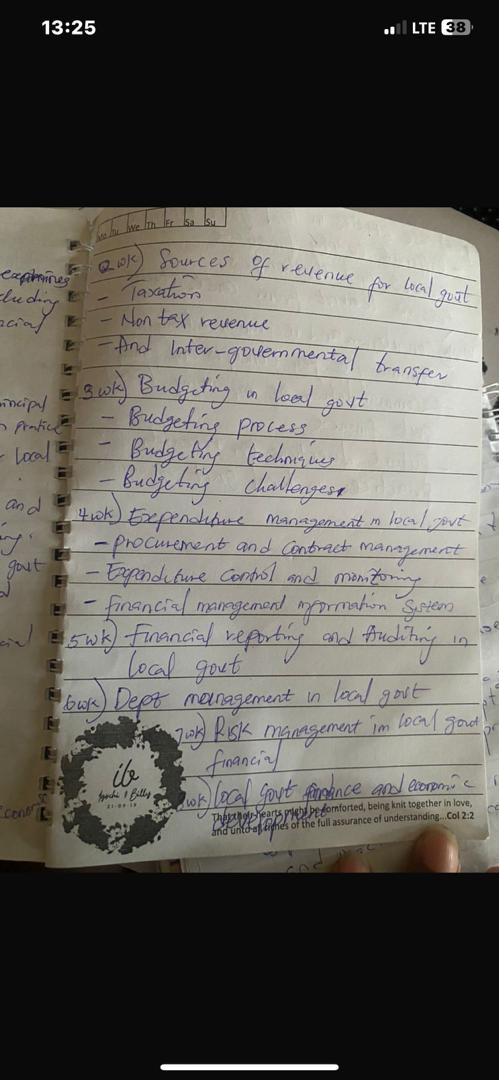 13:25
LTE 38
Mo Tu We Th Fr Sa Su
2wk) Sources of revenue for local govt
- Taxation
- Non tax revenue
- And Inter-governmental transfer
3wk) Budgeting in local govt
- Budgeting process
- Budgeting techniques
- Budgeting challenges
4wk) Expenditure management in local govt
- procurement and contract management
- Expenditure control and monitoring
- financial management information system
5wk) Financial reporting and Auditing in
local govt
6wk) Dept management in local govt
7wk) Risk management im local govt
financial
wk) local govt finance and economic
development
That their hearts might be comforted, being knit together in love,
and unto all riches of the full assurance of understanding...Col 2:2
ib
& Billy
local
and
govt